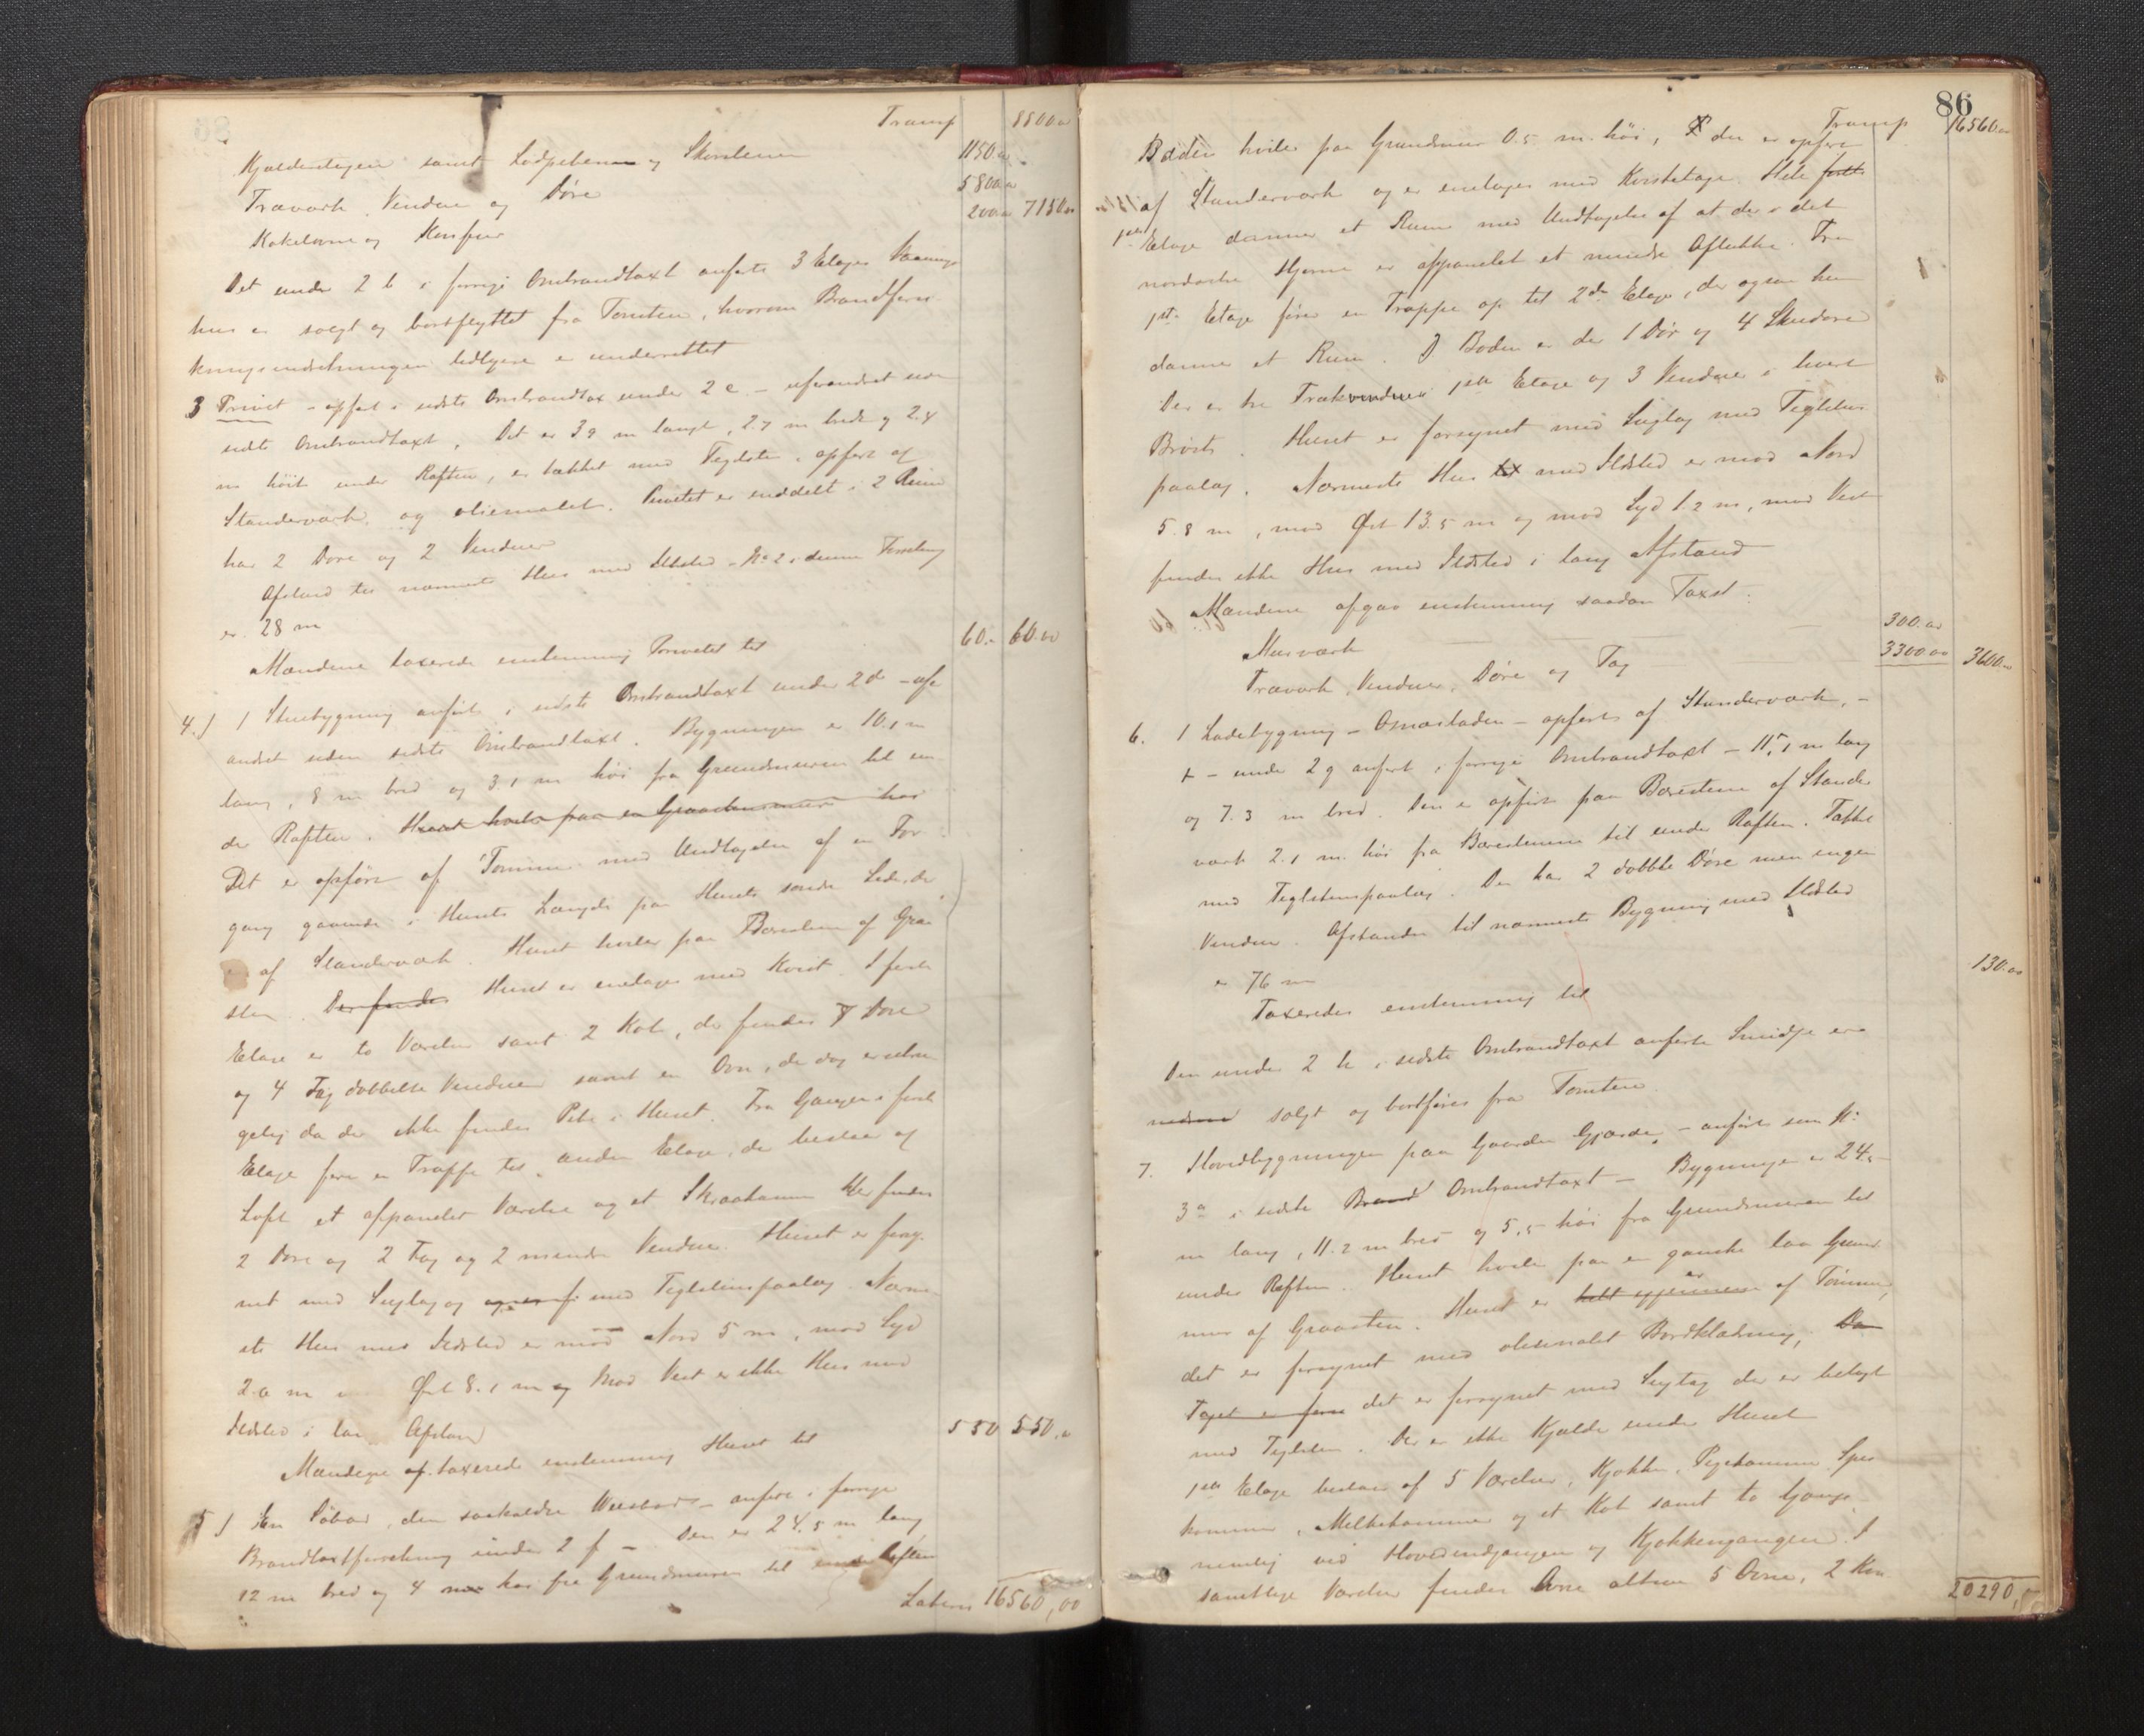 Transp 8800.00
Kjælderstegen samt Lodpibene og Skorstene 1150.00
Træværk, Vinduer og Døre 5800.00
Kakelovne og Komfur 200.00 7150.00
Det under 2 b i forrige Ombrandtaxt anførte 3 Etages Vaanings
hus er solgt og bortflyttet fra Tomten, hvorom Brandforsi
kringsindretningen tidligere er underrettet
3 Privet - opført i sidste Ombrandtax under 2 c - uforandret siden
sidste Ombrandtaxt. Det er 3.9 m langt, 2.7 m bredt og 2.4
m høit under Raften, er tækket med Teglsten, opført af
Standerværk og oliemalet. Privetet er inddelt i 2 Rum
har 2 Døre og 2 Vinduer
Afstand til nærmeste Hus med Ildsted - No 2 i denne Forretning
er 28 m
Mændene taxerede enstemmig Privetet til 60.- 60.00
4.) 1 Stuebygning anført i sidste Ombrandtaxt under 2 d - ufor
andret siden sidste Ombrandtaxt. Bygningen er 10.1 m
lang, 8 m bred og 3.1 m høi fra Grundmuren til un
der Raften. Huset hviler paa en Graastensmuur har
Det er opført af Tømmer med Undtagelse af en For
gang gaaende i Husets Længde paa Husets søndre Side, der
er af Standerværk. Huset hviler paa Bærestene af Graa
sten. Der findes Huset er enetages med Kvist. I første
Etage er to Værelser samt 2 Kot, der findes 7 Døre
og 4 Fag dobbelte Vinduer samt en Ovn, der dog er ubru
gelig da der ikke findes Pibe i Huset. Fra Gangen i første
Etage fører en Trappe til anden Etage, der bestaar af
Loft et afpanelet Værelse og et Skraakammer Her findes
2 Døre og 2 Fag og 2 mindre Vinduer. Huset er forsy
net med Sugtag og med Teglstenspaalæg. Nærme
ste Hus med Ildsted er mod Nord 5 m, mod Syd
2.0 m Øst 8.1 m og mod Vest er ikke Hus med
Ildsted i lang Afstand
Mændene af taxerede enstemmig Huset til 550 550.00
5) En Søbod, den saakaldte - anført i forrige
Brandtaxtforretning under 2 f - Den er 24.5 m lang
12 m bred og 4 m høi fra Grundmuren til under Raften
Lateris 16560,00
86
Transp 16560.00
Boden hviler paa Grundmur 0.5 m. høi, der er opført
af Standerværk og er enetages med Kvistetage. Hele første
1ste Etage danner et Rum med Undtagelse af at der i det
nordøstre Hjørne er afpanelet et mindre Aflukke. Fra
1ste Etage fører en Trappe op til 2den Etage, der ogsaa kun
danner et Rum. I Boden er der 1 Dør og 4 Skudøre
Der er tre Trækvinduer i 1ste Etage og 3 Vinduer i hvert
Brøst. Huset er forsynet med Sugtag med Teglstens
paalæg. Nærmeste Hus med Ildsted er mod Nord
5.8 m, mod Øst 13.5 m og mod Syd 1.2 m, mod Vest
findes ikke Hus med Ildsted i lang Afstand
Mændene afgav enstemmig saadan Taxt:
Murværk 300.00
Træværk, Vinduer, Døre og Tag 3300.00 3600.00
6. 1 Ladebygning - - opført af Standerværk, -
- under 2 g anført i forrige Ombrandtaxt - 11,1 m lang
og 7.3 m bred. Den er opført paa Bærestene af Stander
værk 2.1 m. høi fra Bærestenene til under Raften. Tækket
med Teglstenspaalæg. Den har 2 dobbelte Døre men ingen
Vinduer. Afstanden til nærmeste Bygning med Ildsted
er 76 m
Taxeredes enstemmig til 130.00
Den under 2 h i sidste Ombrandtaxt anførte Smidje er
solgt og bortføres fra Tomten.
7. Hovedbygningen paa Gaarden Gjærde, - anført som No
3 a i sidste Brand Ombrandtaxt - Bygningen er 24.-
m lang, 11.2 m bred og 5,5 høi fra Grundmuren til
under Raften. Huset hviler paa en ganske lav Grund
mur af Graasten. Huset er helt igjennem er af Tømmer,
det er forsynet med oliemalet Bordklædning, Da
Taget er fors det er forsynet med Sugtag der er belagt
med Teglsten. Der er ikke Kjælder under Huset
1ste Etage bestaar af 5 Værelser, Kjøkken, Pigekammer, Spise
kammer, Melkekammer og et Kot samt to Gange
nemlig ved Hovedindgangen og Kjøkkengangen. I
samtlige Værelser findes Ovne altsaa 5 Ovne, 2 Kom
20290,00